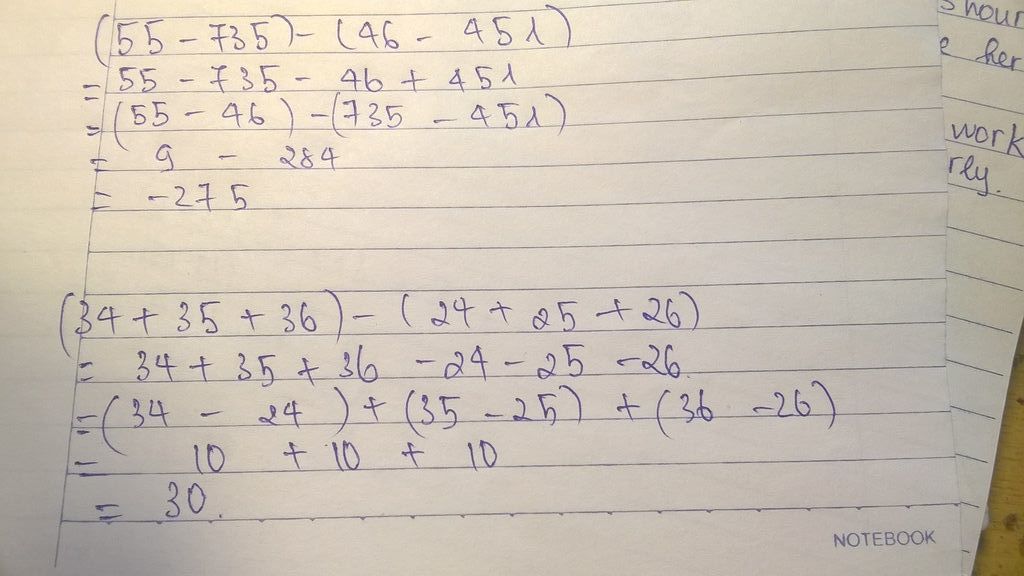 (55 - 735) - (46 - 451)
= 55 - 735 - 46 + 451
= (55 - 46) - (735 - 451)
= 9 - 284
= -275
(34 + 35 + 36) - (24 + 25 + 26)
= 34 + 35 + 36 - 24 - 25 - 26.
= (34 - 24) + (35 - 25) + (36 - 26)
= 10 + 10 + 10
= 30.
NOTEBOOK
her
work